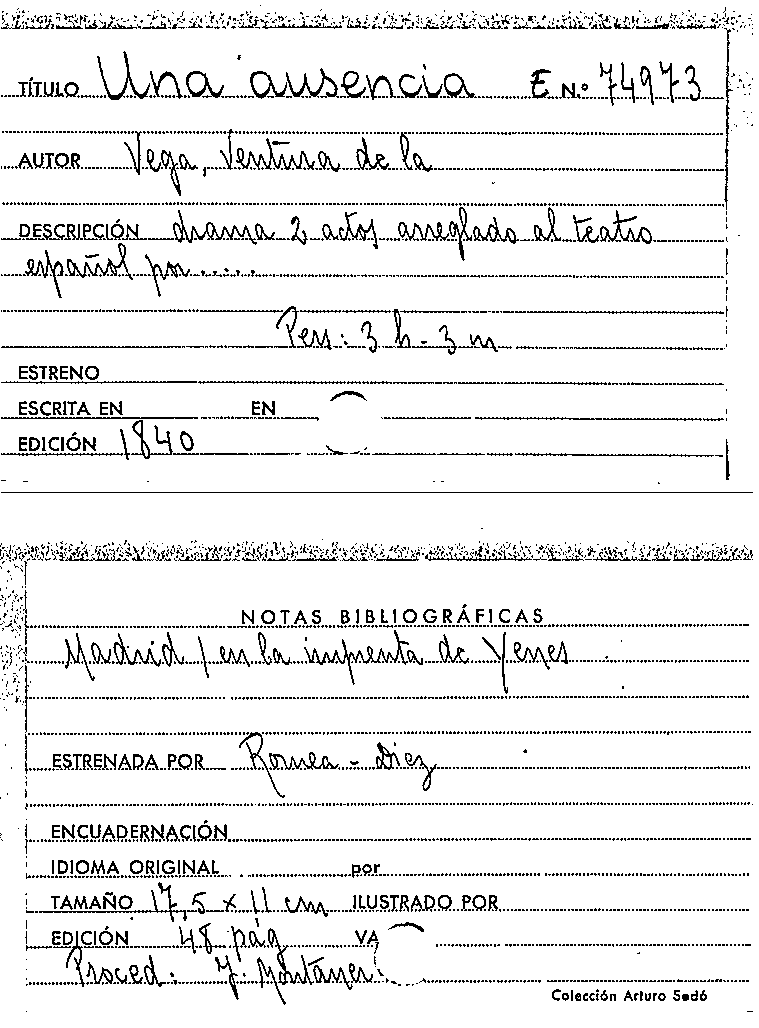 TÍTULO Una ausencia E N.º 74973
AUTOR Vega, Ventura de la
DESCRIPCIÓN drama 2 actos arreglado al teatro
español por.....
Pers: 3 h - 3 m
ESTRENO
ESCRITA EN EN
EDICIÓN 1840
NOTAS BIBLIOGRÁFICAS
Madrid / en la imprenta de Yenes
ESTRENADA POR Romea - Diez
ENCUADERNACIÓN
IDIOMA ORIGINAL por
TAMAÑO 17,5 x 11 cm ILUSTRADO POR
EDICIÓN 48 pág VA
Proced: J. Montaner.
Colección Arturo Sedó